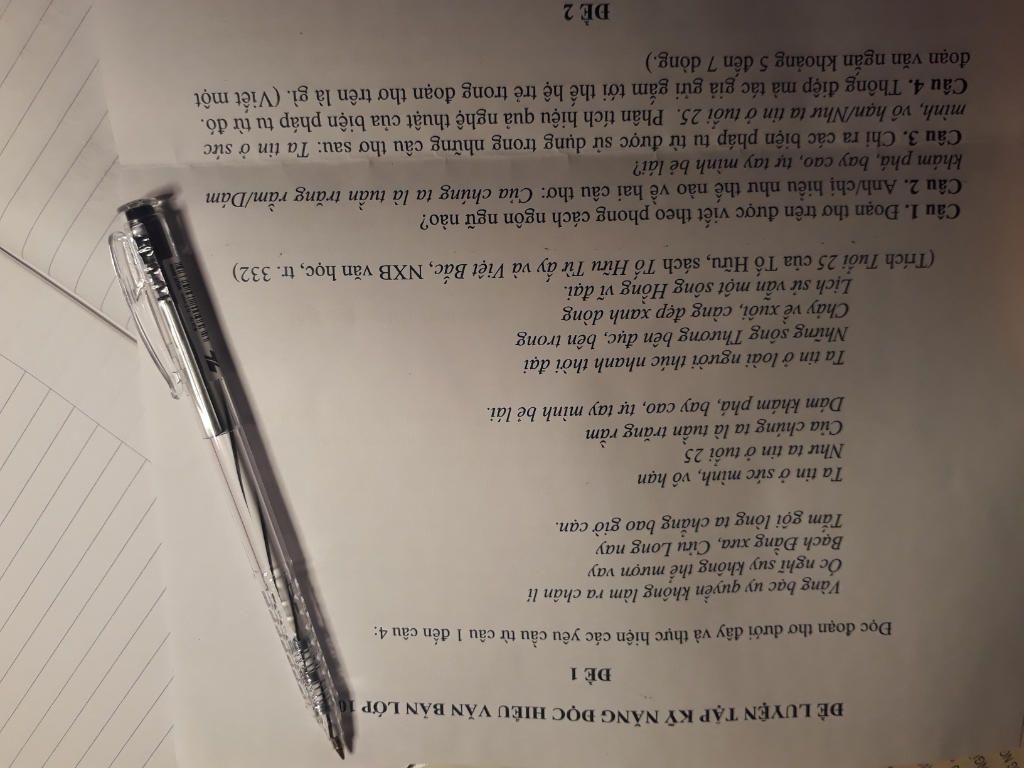 ĐỀ LUYỆN TẬP KỸ NĂNG ĐỌC HIỂU VĂN BẢN LỚP 10
ĐỀ 1
Đọc đoạn thơ dưới đây và thực hiện các yêu cầu từ câu 1 đến câu 4:
Vàng bạc uy quyền không làm ra chân lí
Óc nghĩ suy không thể mượn vay
Bạch Đằng xưa, Cửu Long nay
Tắm gội lòng ta chẳng bao giờ cạn.
Ta tin ở sức mình, vô hạn
Như ta tin ở tuổi 25
Của chúng ta là tuần trăng rằm
Dám khám phá, bay cao, tự tay mình bẻ lái.
Ta tin ở loài người thúc nhanh thời đại
Những sông Thương bên đục, bên trong
Chảy về xuôi, càng đẹp xanh dòng
Lịch sử vẫn một sông Hồng vĩ đại.
(Trích Tuổi 25 của Tố Hữu, sách Tố Hữu Từ ấy và Việt Bắc, NXB văn học, tr. 332)
Câu 1. Đoạn thơ trên được viết theo phong cách ngôn ngữ nào?
Câu 2. Anh/chị hiểu như thế nào về hai câu thơ: Của chúng ta là tuần trăng rằm/Dám
khám phá, bay cao, tự tay mình bẻ lái?
Câu 3. Chỉ ra các biện pháp tu từ được sử dụng trong những câu thơ sau: Ta tin ở sức
mình, vô hạn/Như ta tin ở tuổi 25. Phân tích hiệu quả nghệ thuật của biện pháp tu từ đó.
Câu 4. Thông điệp mà tác giả gửi gắm tới thế hệ trẻ trong đoạn thơ trên là gì. (Viết một
đoạn văn ngắn khoảng 5 đến 7 dòng.)
ĐỀ 2